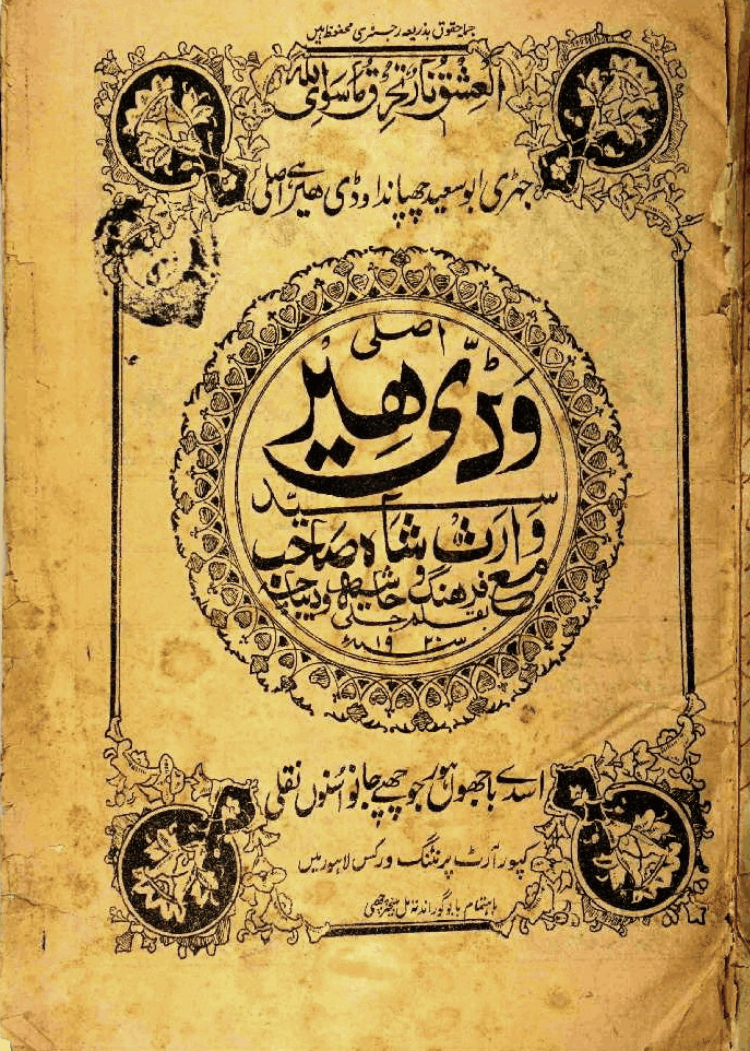 جملہ حقوق بذریعہ رجسٹری محفوظ ہیں
العشق نار تحرق ما سوی اللہ
جہڑی ابو سعید چھپاندا وڈی ھیر ہے اصلی
اصلی
وَڈّی ھِیر
سیّد
وارث شاہ صاحب
مع فرھنگ و حاشیہ و دیباچہ
بقلم جلی
سنہ ۱۹۲۰ء
اسدے باجھوں ہور جو چھپے جانو اسنوں نقلی
کپور آرٹ پرنٹنگ ورکس لاہور میں
باہتمام بابو گوراندتہ مل مینجر چھپی